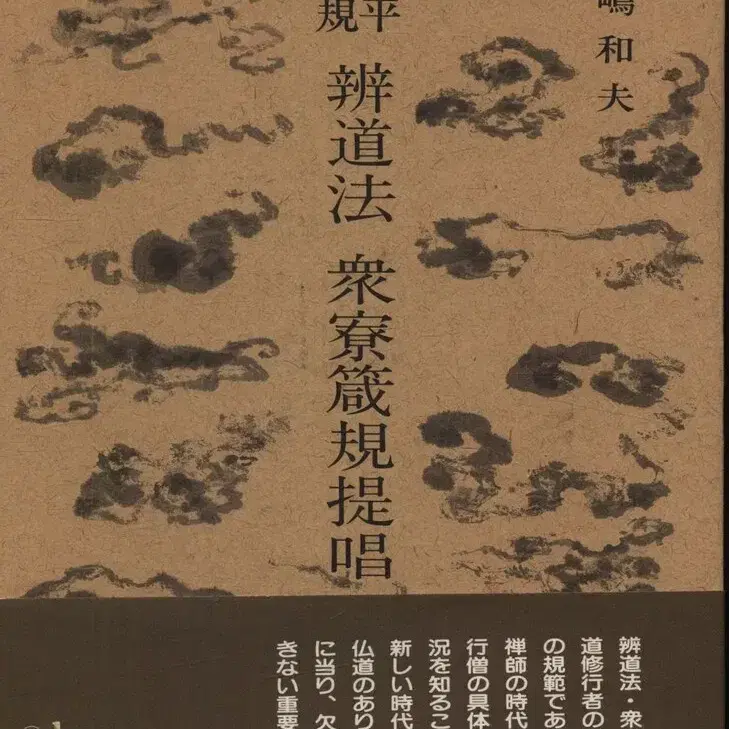 嶋和夫
平
規
辨道法 衆寮箴規提唱
辨道法・衆
道修行者の
の規範であ
禅師の時代
行僧の具体
況を知るこ
新しい時代
仏道のあり
に当り、欠
きない重要